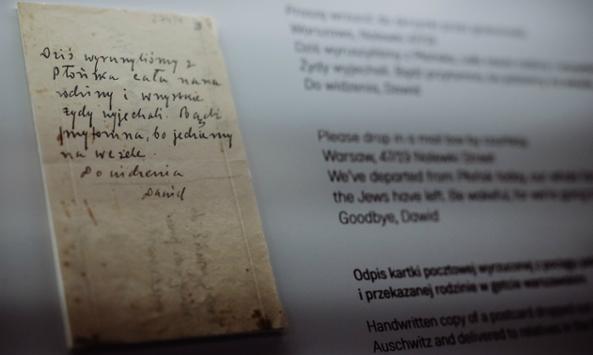 Dziś wyruszyliśmy z
Płońska cała nasza
rodzina i wszystkie
żydy wyjechali. Bądź
przytomna, bo jedziemy
na wesele.
Do widzenia
Dawid
Proszę wrzucić do skrzynki
Warszawa, Nalewki
Dziś wyruszyliśmy z Płońska, cała nasza
Żydy wyjechali. Bądź przytomna, bo jedziemy
Do widzenia, Dawid
Please drop in a mail box by courtesy.
Warsaw, 47/19 Nalewki Street
We've departed from Płońsk today, our whole
the Jews have left. Be wakeful, for we're going
Goodbye, Dawid
Odpis kartki pocztowej wyrzuconej z pociągu
i przekazanej rodzinie w getcie warszawskim
Handwritten copy of a postcard dropped
Auschwitz and delivered to relatives in the